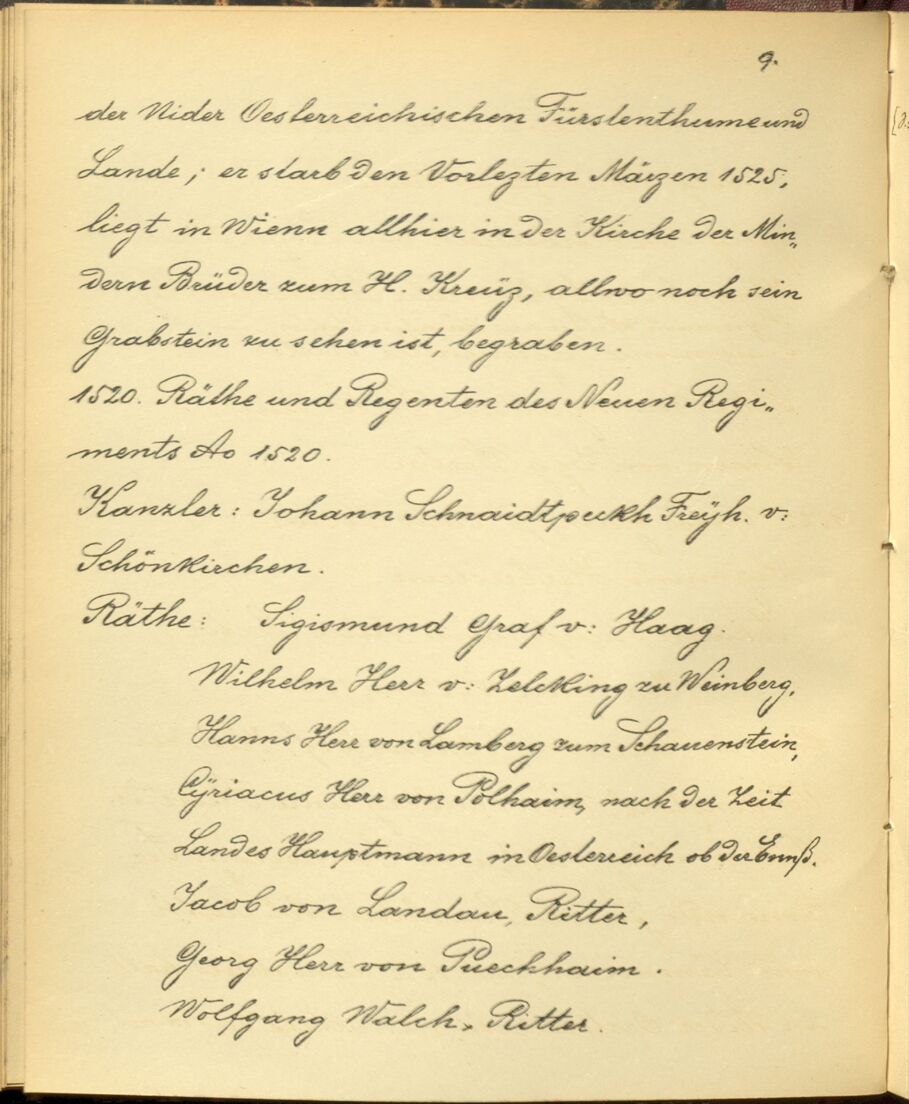 9.
der Nider Oesterreichischen Fürstenthume und
Lande; er starb den Vorlezten Märzen 1525,
liegt in Wienn allhier in der Kirche der Min„
dern Brüder zum H. Kreüz, allwo noch sein
Grabstein zu sehen ist, begraben.
1520. Räthe und Regenten des Neuen Regi„
ments Ao 1520.
Kanzler: Johann Schnaidtpeckh Freÿh. v:
Schönkirchen.
Räthe: Sigismund Graf v: Haag.
Wilhelm Herr v: Zelcking zu Weinberg,
Hanns Herr von Lamberg zum Schauenstein,
Cÿriacus Herr von Polhaim, nach der Zeit
Landes Hauptmann in Oesterreich ob der Ennß.
Jacob von Landau, Ritter,
Georg Herr von Pueckhaim.
Wolfgang Walch, Ritter.